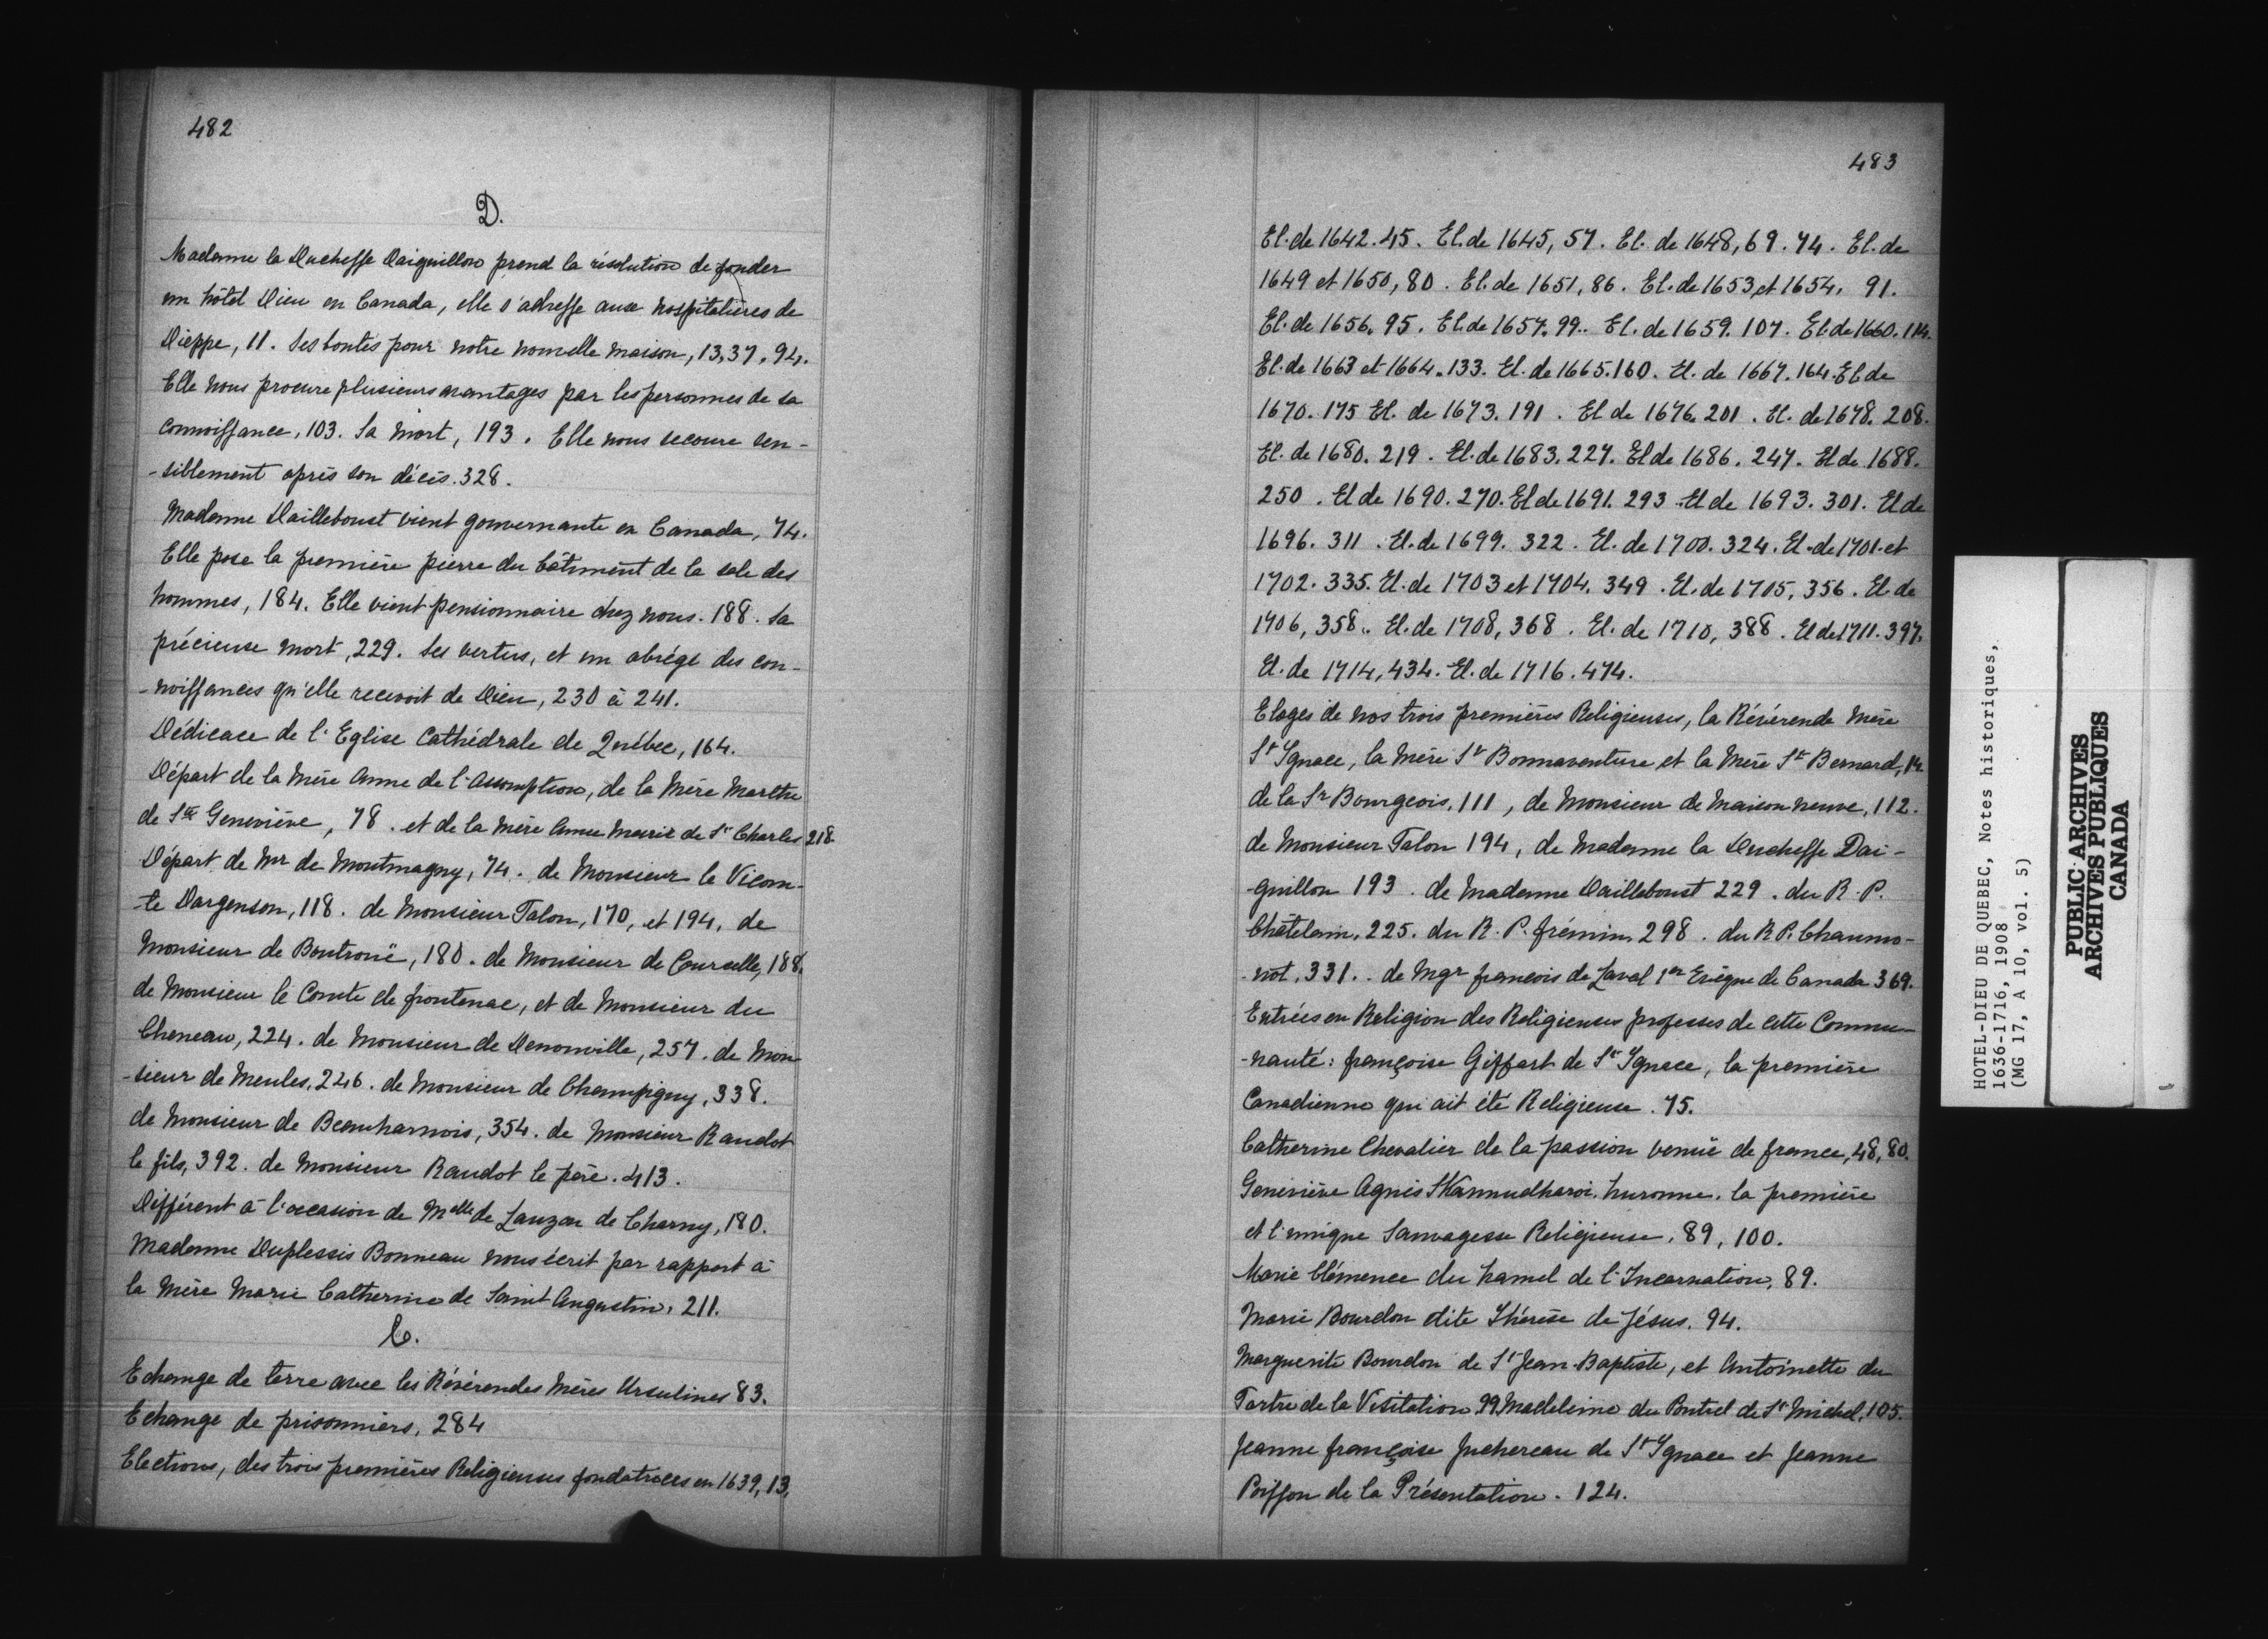 482
D.
Madame la Duchesse Daiguillon prend la résolution de fonder
un hôtel Dieu en Canada, elle s'adresse aux hospitalières de
Dieppe, 11. Ses bontés pour notre nouvelle maison, 13, 37, 94.
Elle nous procure plusieurs avantages par les personnes de sa
connoissance, 103. Sa mort, 193. Elle nous secoure sen-
-siblement après son décès. 328.
Madame Dailleboust vient gouvernante en Canada, 74.
Elle pose la première pierre du bâtiment de la sale des
hommes, 184. Elle vient pensionnaire chez nous. 188. Sa
précieuse mort, 229. Ses vertus, et un abrégé des con-
-noissances qu'elle recevoit de Dieu, 230 à 241.
Dédicace de l'Eglise Cathédrale de Québec, 164.
Départ de la Mère Anne de l'Assomption, de la Mère Marthe
de Ste Geneviève, 78. et de la Mère Anne Marie de St Charles 218
Départ de Mr de Montmagny, 74. de Monsieur le Vicom-
-te Dargenson, 118. de Monsieur Talon, 170, et 194, de
Monsieur de Boutroüe, 180. de Monsieur de Courcelle, 188,
de Monsieur le Comte de frontenac, et de Monsieur du
Cheneau, 224. de Monsieur de Denonville, 257. de Mon
-sieur de Meules, 246. de Monsieur de Champigny, 338.
de Monsieur de Beauharnois, 354. de Monsieur Raudot
le fils, 392. de Monsieur Raudot le père. 413.
Différent à l'occasion de Melle de Lauzon de Charny, 180.
Madame Duplessis Bonneau nous écrit par rapport à
la Mère Marie Catherine de Saint Augustin, 211.
E.
Echange de terre avec les Révérendes Mères Ursulines 83.
Echange de prisonniers, 284
Elections, des trois premières Religieuses fondatrices en 1639, 13,
483
El. de 1642. 45. El. de 1645, 57. El. de 1648, 69. 74. El. de
1649 et 1650, 80. El. de 1651, 86. El. de 1653, et 1654, 91.
El. de 1656. 95. El. de 1657. 99. El. de 1659. 107. El. de 1660. 114.
El. de 1663 et 1664. 133. El. de 1665. 160. El. de 1667. 164. El de
1670. 175 El. de 1673. 191. El de 1676. 201. El. de 1678. 208.
El. de 1680. 219. El. de 1683. 227. El de 1686. 247. El de 1688.
250. El de 1690. 270. El de 1691. 293 El de 1693. 301. El de
1696. 311. El. de 1699. 322. El. de 1700. 324. El. de 1701 et
1702. 335. El. de 1703 et 1704. 349. El. de 1705, 356. El. de
1706, 358. El. de 1708, 368. El. de 1710, 388. El de 1711. 397.
El. de 1714, 434. El. de 1716. 474.
Eloges de nos trois premières Religieuses, la Révérende Mère
St Ignace, la Mère St Bonnaventure et la Mère St Bernard, 14
de la Sr Bourgeois, 111, de Monsieur de Maison neuve, 112.
de Monsieur Talon 194, de Madame la Duchesse Dai-
-guillon 193. de Madame Dailleboust 229. du R. P.
Châtelain, 225. du R. P. frémin, 298. du R P. Chaumo-
-not, 331. de Mgr francois de Laval 1er Evêque de Canada 369.
Entrées en Religion des Religieuses professes de cette Commu-
-nauté: françoise Giffart de St Ignace, la première
Canadienne qui ait été Religieuse. 75.
Catherine Chevalier de la passion venüe de france, 48, 80.
Geneviève Agnès Skannudharoi, huronne, la première
et l'unique Sauvagesse Religieuse, 89, 100.
Marie Clémence du hamel de l'Incarnation, 89.
Marie Bourdon dite Thérèse de Jésus. 94.
Marguerite Bourdon de St Jean-Baptiste, et Antoinette du
Tartre de la Visitation 99. Madeleine du Poutrel de St Michel, 105.
Jeanne françoise Juchereau de St Ignace et Jeanne
Poisson de la Présentation. 124.
HOTEL-DIEU DE QUEBEC, Notes historiques,
1636-1716, 1908
(MG 17, A 10, vol. 5)
PUBLIC ARCHIVES
ARCHIVES PUBLIQUES
CANADA